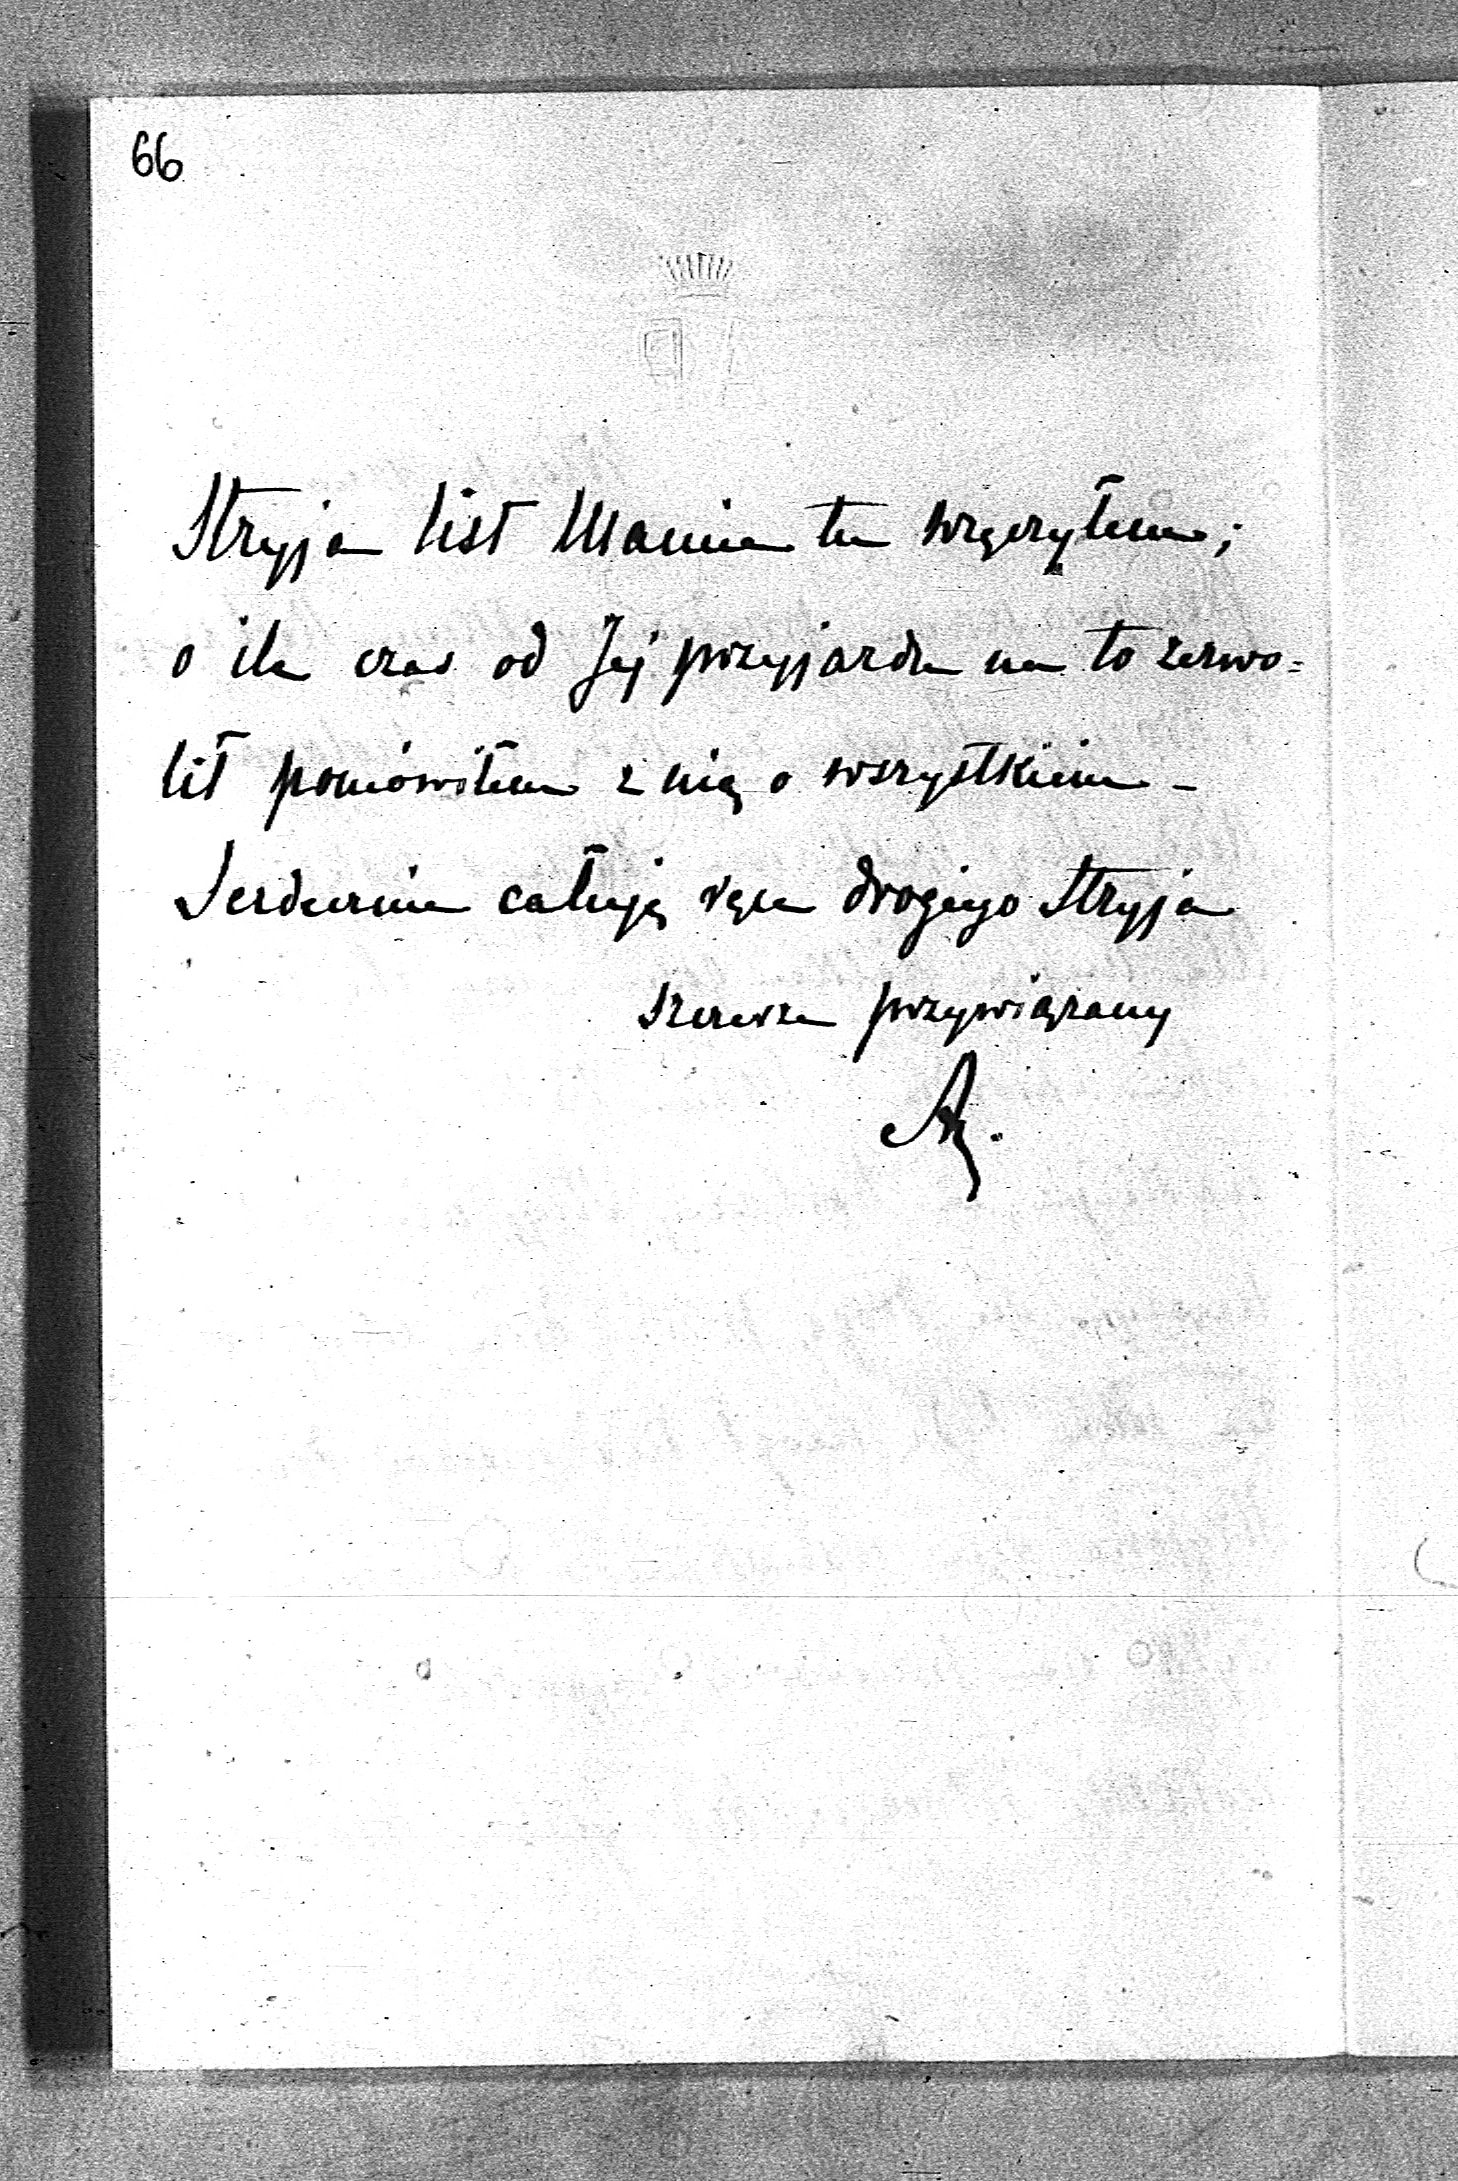 66
Stryja list Mamie tu wręczyłem;
o ile czas od Jej przyjazdu na to zezwo=
lił pomówiłem z nią o wszystkiem -
Serdecznie całuję ręce drogiego Stryja
szczerze przywiązany